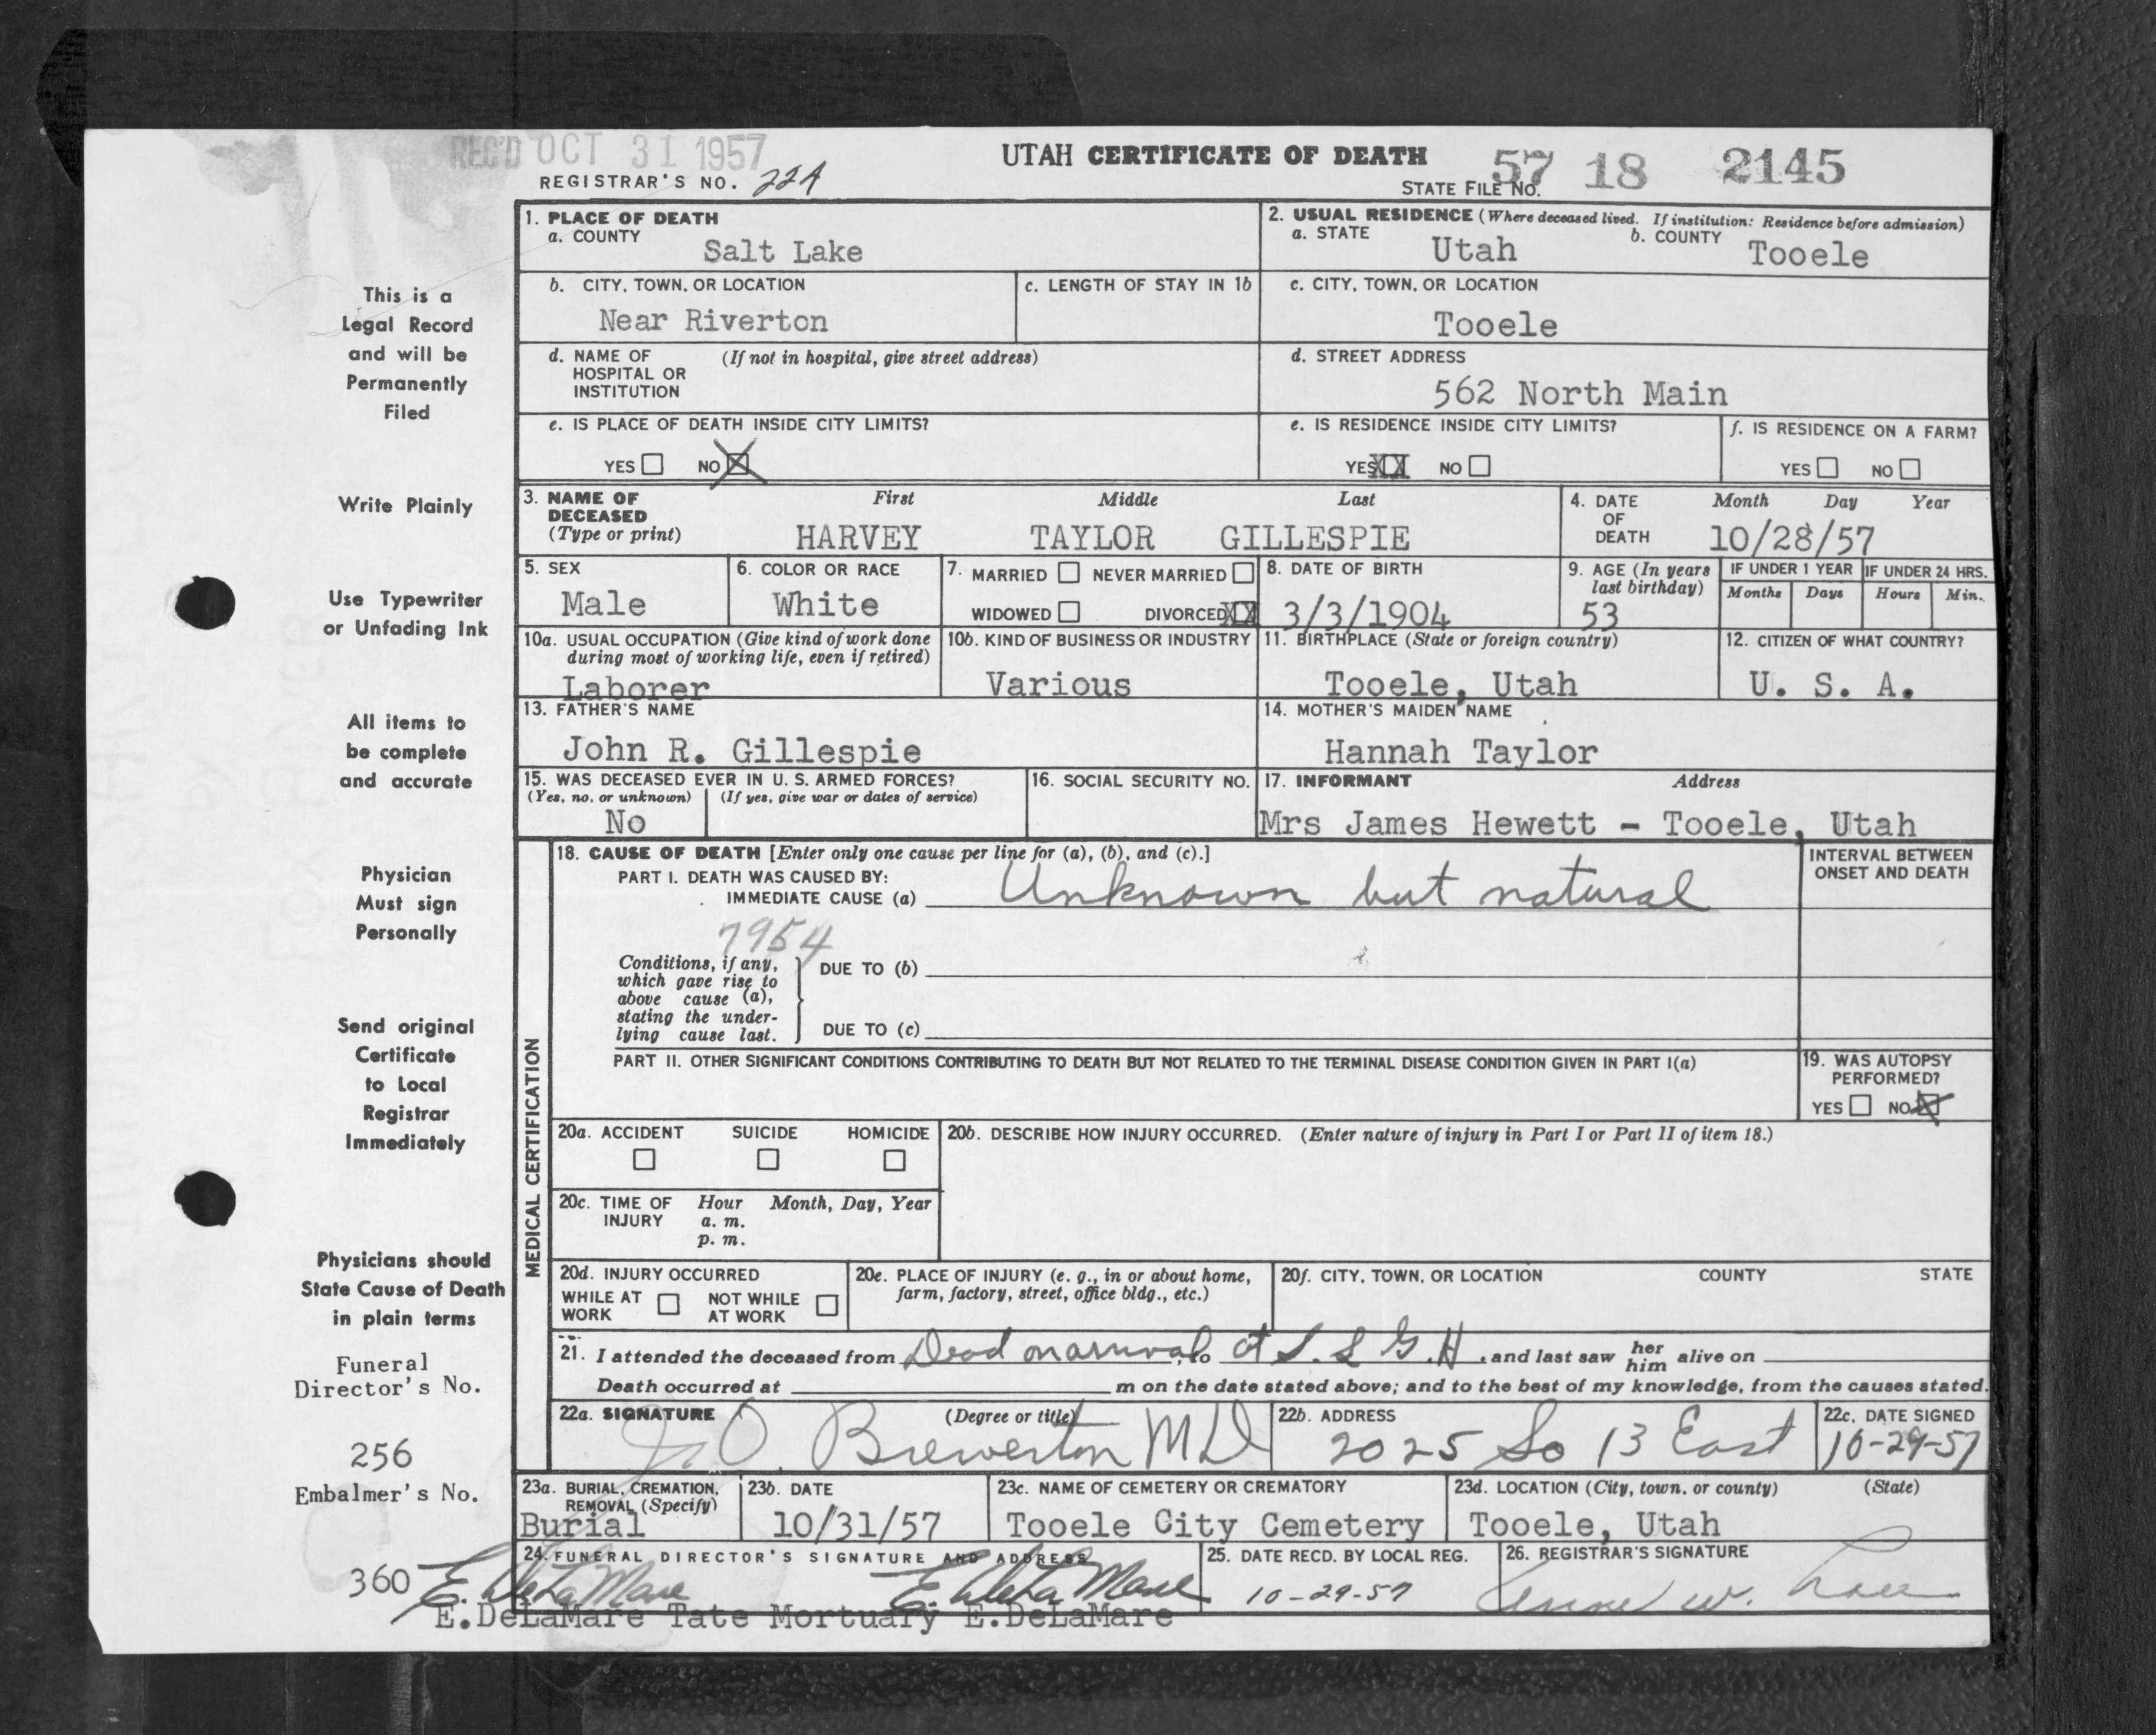 REC'D OCT 31 1957
REGISTRAR'S NO. 224
UTAH CERTIFICATE OF DEATH
STATE FILE NO. 57 18 2145
1. PLACE OF DEATH
a. COUNTY
Salt Lake
2. USUAL RESIDENCE (Where deceased lived. If institution: Residence before admission)
a. STATE
Utah
b. COUNTY
Tooele
b. CITY, TOWN, OR LOCATION
Near Riverton
c. LENGTH OF STAY IN 1b
c. CITY, TOWN, OR LOCATION
Tooele
d. NAME OF HOSPITAL OR INSTITUTION (If not in hospital, give street address)
d. STREET ADDRESS
562 North Main
e. IS PLACE OF DEATH INSIDE CITY LIMITS?
YES NO X
e. IS RESIDENCE INSIDE CITY LIMITS?
YES XX NO
f. IS RESIDENCE ON A FARM?
YES NO
3. NAME OF DECEASED (Type or print)
First Middle Last
HARVEY TAYLOR GILLESPIE
4. DATE OF DEATH
Month Day Year
10/28/57
5. SEX
Male
6. COLOR OR RACE
White
7. MARRIED NEVER MARRIED
WIDOWED DIVORCED XX
8. DATE OF BIRTH
3/3/1904
9. AGE (In years last birthday)
53
IF UNDER 1 YEAR
Months Days
IF UNDER 24 HRS.
Hours Min.
10a. USUAL OCCUPATION (Give kind of work done during most of working life, even if retired)
Laborer
10b. KIND OF BUSINESS OR INDUSTRY
Various
11. BIRTHPLACE (State or foreign country)
Tooele, Utah
12. CITIZEN OF WHAT COUNTRY?
U. S. A.
13. FATHER'S NAME
John R. Gillespie
14. MOTHER'S MAIDEN NAME
Hannah Taylor
15. WAS DECEASED EVER IN U. S. ARMED FORCES?
(Yes, no, or unknown) (If yes, give war or dates of service)
No
16. SOCIAL SECURITY NO.
17. INFORMANT Address
Mrs James Hewett - Tooele, Utah
MEDICAL CERTIFICATION
18. CAUSE OF DEATH [Enter only one cause per line for (a), (b), and (c).]
PART I. DEATH WAS CAUSED BY:
IMMEDIATE CAUSE (a) Unknown but natural
7954
Conditions, if any, which gave rise to above cause (a), stating the underlying cause last.
DUE TO (b)
DUE TO (c)
INTERVAL BETWEEN ONSET AND DEATH
PART II. OTHER SIGNIFICANT CONDITIONS CONTRIBUTING TO DEATH BUT NOT RELATED TO THE TERMINAL DISEASE CONDITION GIVEN IN PART I(a)
19. WAS AUTOPSY PERFORMED?
YES NO X
20a. ACCIDENT SUICIDE HOMICIDE
20b. DESCRIBE HOW INJURY OCCURRED. (Enter nature of injury in Part I or Part II of item 18.)
20c. TIME OF INJURY Hour Month, Day, Year
a. m.
p. m.
20d. INJURY OCCURRED
WHILE AT WORK NOT WHILE AT WORK
20e. PLACE OF INJURY (e. g., in or about home, farm, factory, street, office bldg., etc.)
20f. CITY, TOWN, OR LOCATION COUNTY STATE
21. I attended the deceased from Dead on arrival, to at S. L G. H, and last saw her him alive on
Death occurred at m on the date stated above; and to the best of my knowledge, from the causes stated.
22a. SIGNATURE (Degree or title)
O. Brewerton MD
22b. ADDRESS
2025 So 13 East
22c. DATE SIGNED
10-29-57
23a. BURIAL, CREMATION, REMOVAL (Specify)
Burial
23b. DATE
10/31/57
23c. NAME OF CEMETERY OR CREMATORY
Tooele City Cemetery
23d. LOCATION (City, town, or county) (State)
Tooele, Utah
24. FUNERAL DIRECTOR'S SIGNATURE AND ADDRESS
E. DeLaMare E. DeLaMare
E.DeLaMare Tate Mortuary E.DeLaMare
25. DATE RECD. BY LOCAL REG.
10-29-57
26. REGISTRAR'S SIGNATURE
This is a
Legal Record
and will be
Permanently
Filed
Write Plainly
Use Typewriter
or Unfading Ink
All items to
be complete
and accurate
Physician
Must sign
Personally
Send original
Certificate
to Local
Registrar
Immediately
Physicians should
State Cause of Death
in plain terms
Funeral
Director's No.
256
Embalmer's No.
360